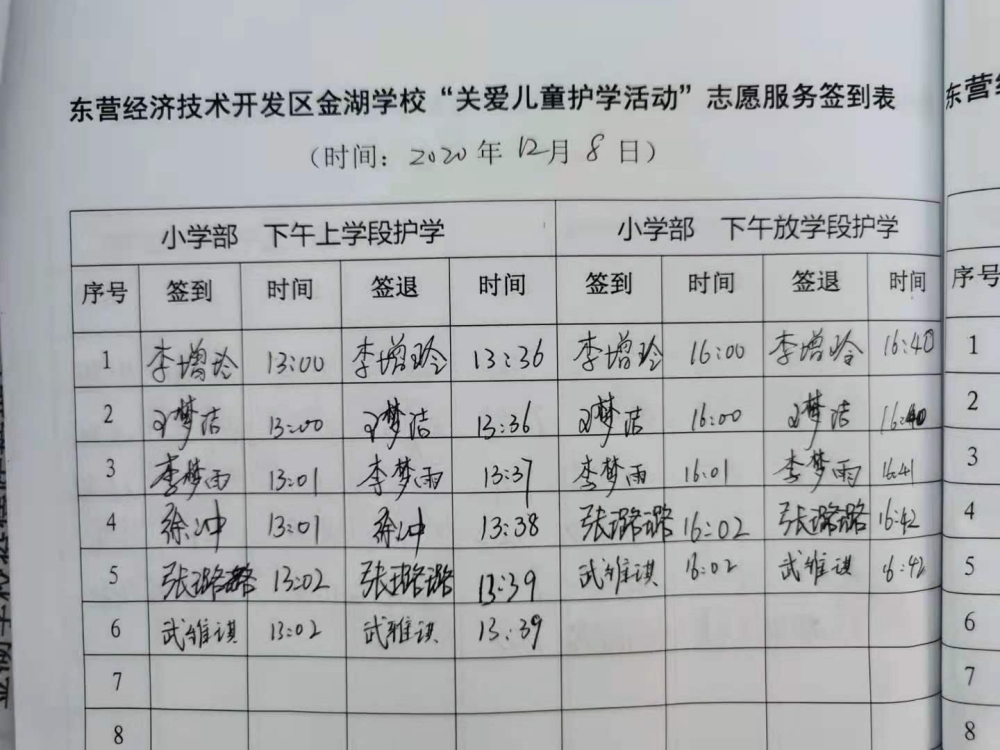 东营经济技术开发区金湖学校“关爱儿童护学活动”志愿服务签到表
（时间：2020年12月8日）
小学部 下午上学段护学 小学部 下午放学段护学
序号 签到 时间 签退 时间 签到 时间 签退 时间
1 李增玲 13:00 李增玲 13:36 李增玲 16:00 李增玲 16:40
2 梦洁 13:00 梦洁 13:36 梦洁 16:00 梦洁 16:40
3 李梦雨 13:01 李梦雨 13:37 李梦雨 16:01 李梦雨 16:41
4 徐冲 13:01 徐冲 13:38 张璐璐 16:02 张璐璐 16:42
5 张璐璐 13:02 张璐璐 13:39 武维琪 16:02 武维琪 16:42
6 武维琪 13:02 武维琪 13:39
7
8
东营
序号
1
2
3
4
5
6
7
8